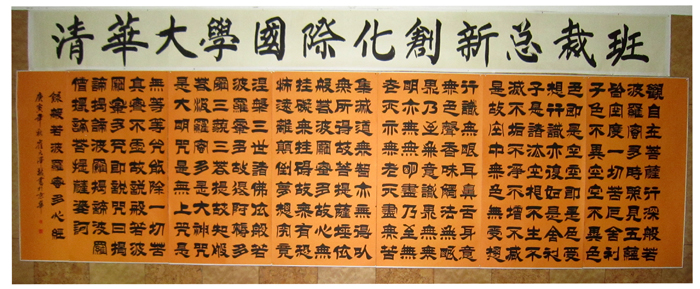 清華大學國際化創新总裁班
觀自在菩薩行深般若
波羅蜜多時照見五蘊
皆空度一切苦厄舍利
子色不異空空不異色
色即是空空即是色受
想行識亦復如是舍利
子是諸法空相不生不
滅不垢不淨不增不減
是故空中無色無受想
行識無眼耳鼻舌身意
無色聲香味觸法無眼
界乃至無意識界無無
明亦無無明盡乃至無
老死亦無老死盡無苦
集滅道無智亦無得以
無所得故菩提薩埵依
般若波羅蜜多故心無
罣礙無罣礙故無有恐
怖遠離顛倒夢想究竟
涅槃三世諸佛依般若
波羅蜜多故得阿耨多
羅三藐三菩提故知般
若波羅蜜多是大神咒
是大明咒是無上咒是
無等等咒能除一切苦
真實不虛故說般若波
羅蜜多咒即說咒曰揭
諦揭諦波羅揭諦波羅
僧揭諦菩提薩婆訶
錄般若波羅蜜多心經